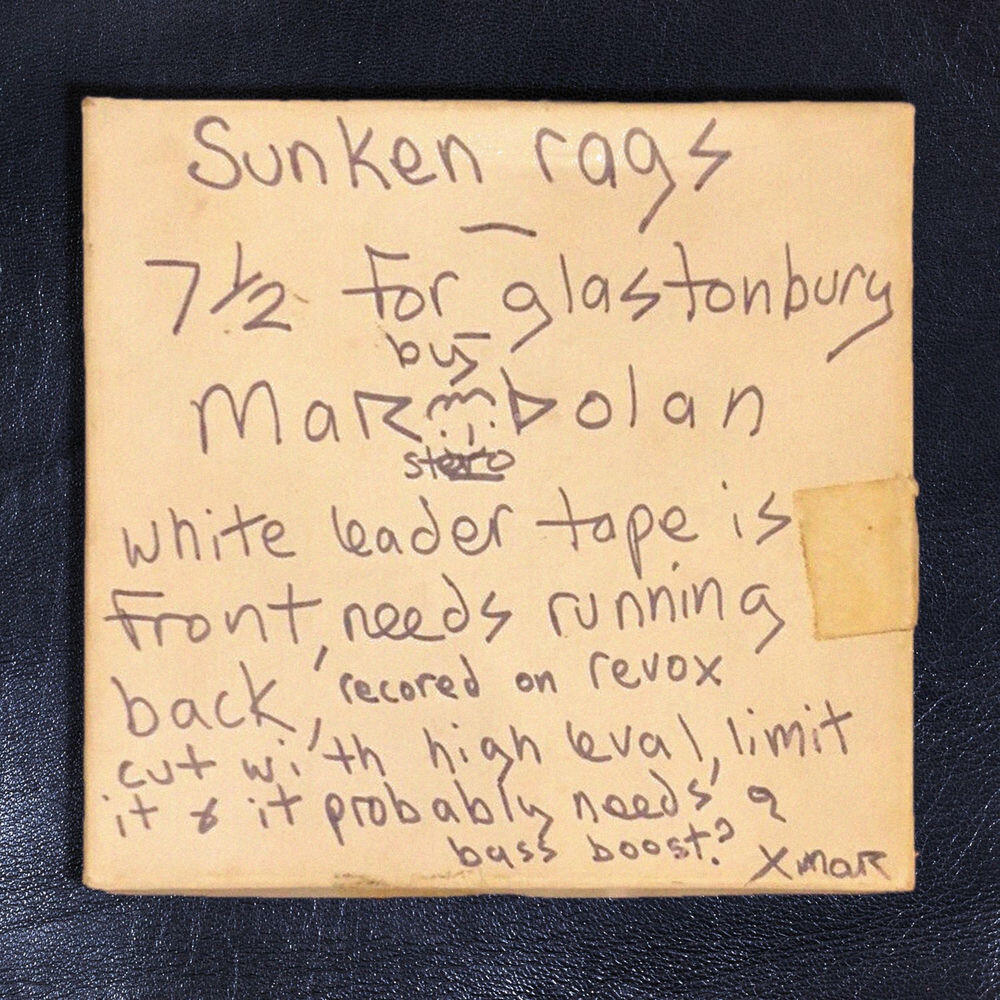 Sunken rags
7 1/2 for glastonbury
by
Marc bolan
white leader tape is
Front, needs running
back, recored on revox
cut with high leval, limit
it & it probably needs a
bass boost?
X marc